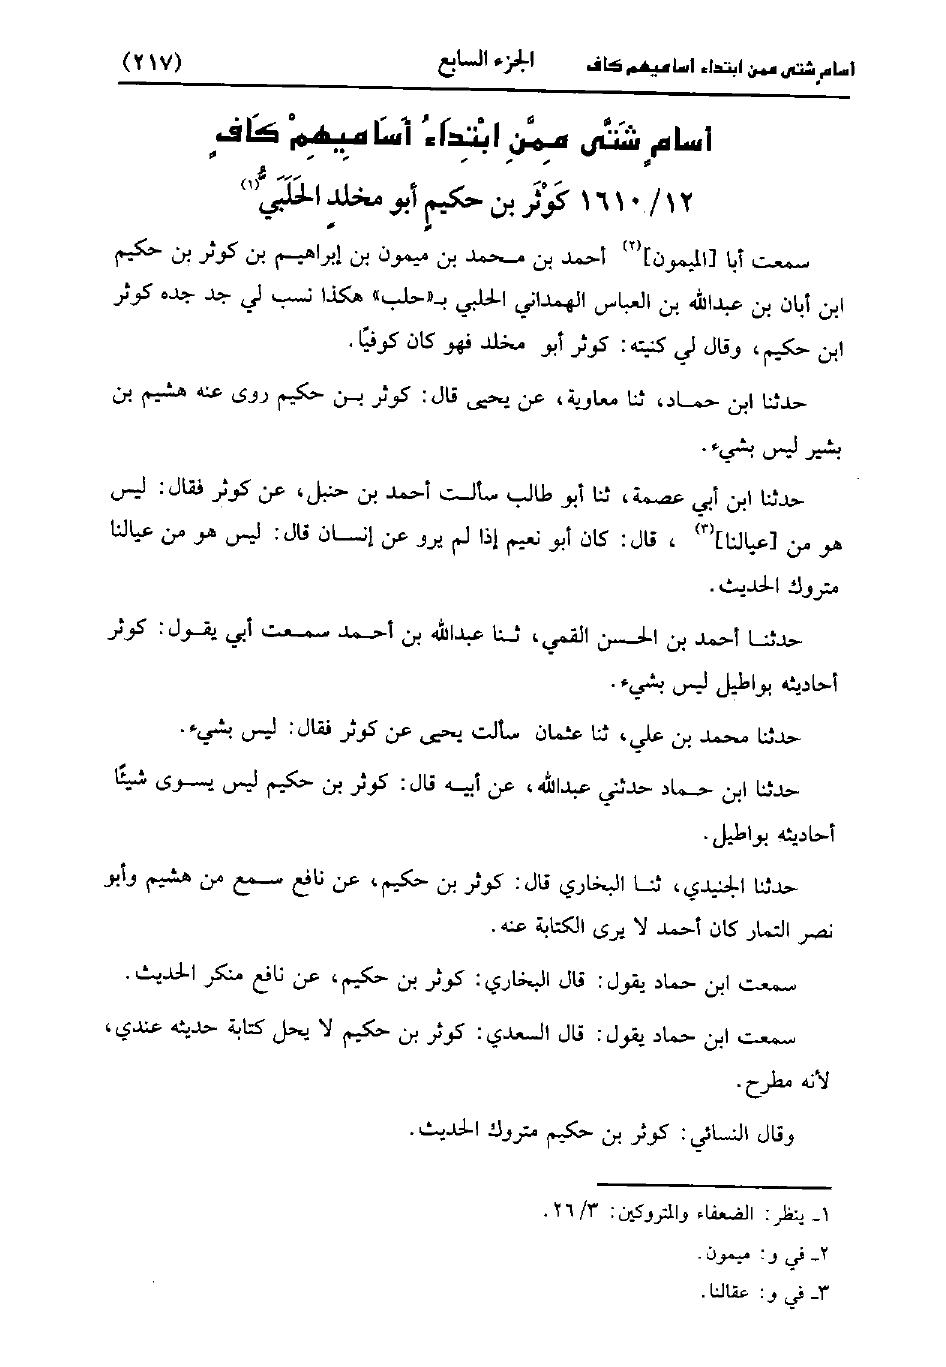 أسامٍ شتى ممن ابتداء أساميهم كاف الجزء السابع (٢١٧)
أسامٍ شَتَّى مِمَّنِ ابْتِدَاءُ أَسَامِيهِمْ كَافٍ
١٦١٠/١٢ كَوْثَر بن حكيمٍ أبو مخلدٍ الحَلَبَيُّ(١)
سمعت أبا [الميمون](٢) أحمد بن محمد بن ميمون بن إبراهيم بن كوثر بن حكيم
ابن أبان بن عبدالله بن العباس الهمداني الحلبي بـ«حلب» هكذا نسب لي جد جده كوثر
ابن حكيم، وقال لي كنيته: كوثر أبو مخلد فهو كان كوفيًا.
حدثنا ابن حماد، ثنا معاوية، عن يحيى قال: كوثر بن حكيم روى عنه هشيم بن
بشير ليس بشيء.
حدثنا ابن أبي عصمة، ثنا أبو طالب سألت أحمد بن حنبل، عن كوثر فقال: ليس
هو من [عيالنا](٣) ، قال: كان أبو نعيم إذا لم يرو عن إنسان قال: ليس هو من عيالنا
متروك الحديث.
حدثنا أحمد بن الحسن القمي، ثنا عبدالله بن أحمد سمعت أبي يقول: كوثر
أحاديثه بواطيل ليس بشيء.
حدثنا محمد بن علي، ثنا عثمان سألت يحيى عن كوثر فقال: ليس بشيء.
حدثنا ابن حماد حدثني عبدالله، عن أبيه قال: كوثر بن حكيم ليس يسوى شيئًا
أحاديثه بواطيل.
حدثنا الجنيدي، ثنا البخاري قال: كوثر بن حكيم، عن نافع سمع من هشيم وأبو
نصر التمار كان أحمد لا يرى الكتابة عنه.
سمعت ابن حماد يقول: قال البخاري: كوثر بن حكيم، عن نافع منكر الحديث.
سمعت ابن حماد يقول: قال السعدي: كوثر بن حكيم لا يحل كتابة حديثه عندي،
لأنه مطرح.
وقال النسائي: كوثر بن حكيم متروك الحديث.
١ـ ينظر: الضعفاء والمتروكين: ٢٦/٣.
٢ـ في و: ميمون.
٣ـ في و: عقالنا.